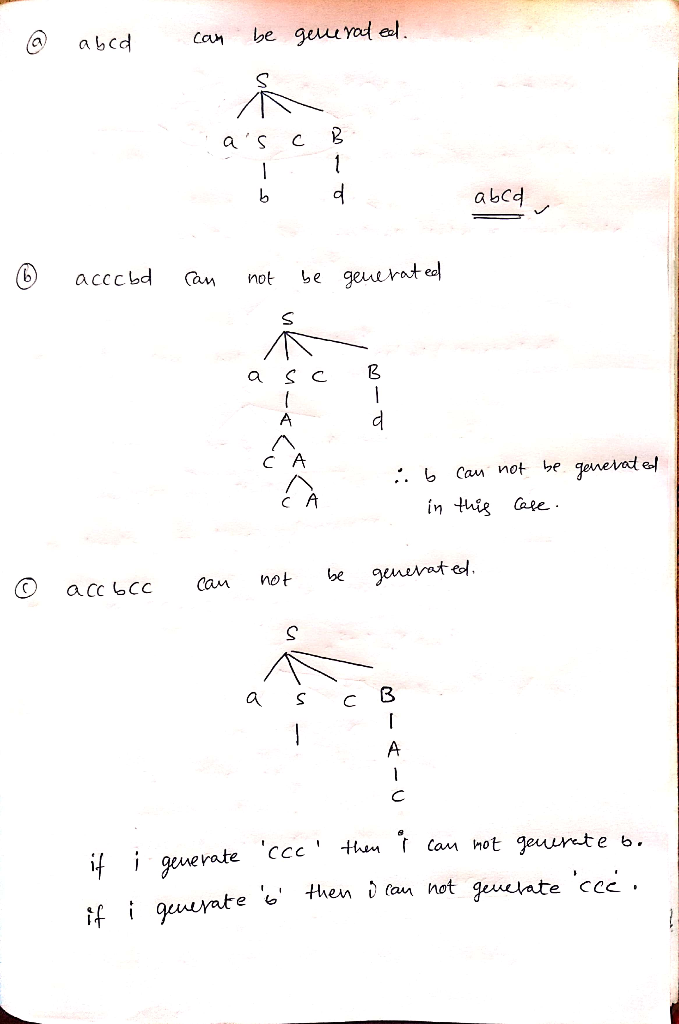 (a) abcd can be generated.
S
a S c B
b d
abcd ✓
(b) acccbd can not be generated
S
a S c B
A d
C A
C A
∴ b can not be generated
in this case.
(c) accbcc can not be generated.
S
a S c B
A
C
if i generate 'ccc' then i can not generate b.
if i generate 'b' then i can not generate 'ccc'.